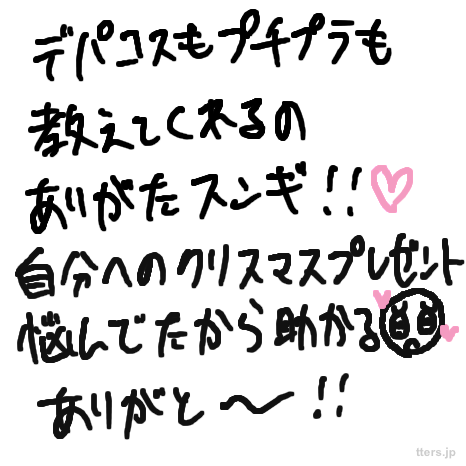 デパコスもプチプラも
教えてくれるの
ありがたスンギ!!♡
自分へのクリスマスプレゼント
悩んでたから助かる
ありがと〜!!
tters.jp